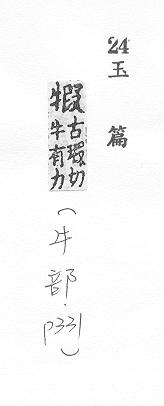 24
玉篇
犌
古瑕切
牛有力
(牛部·p331)